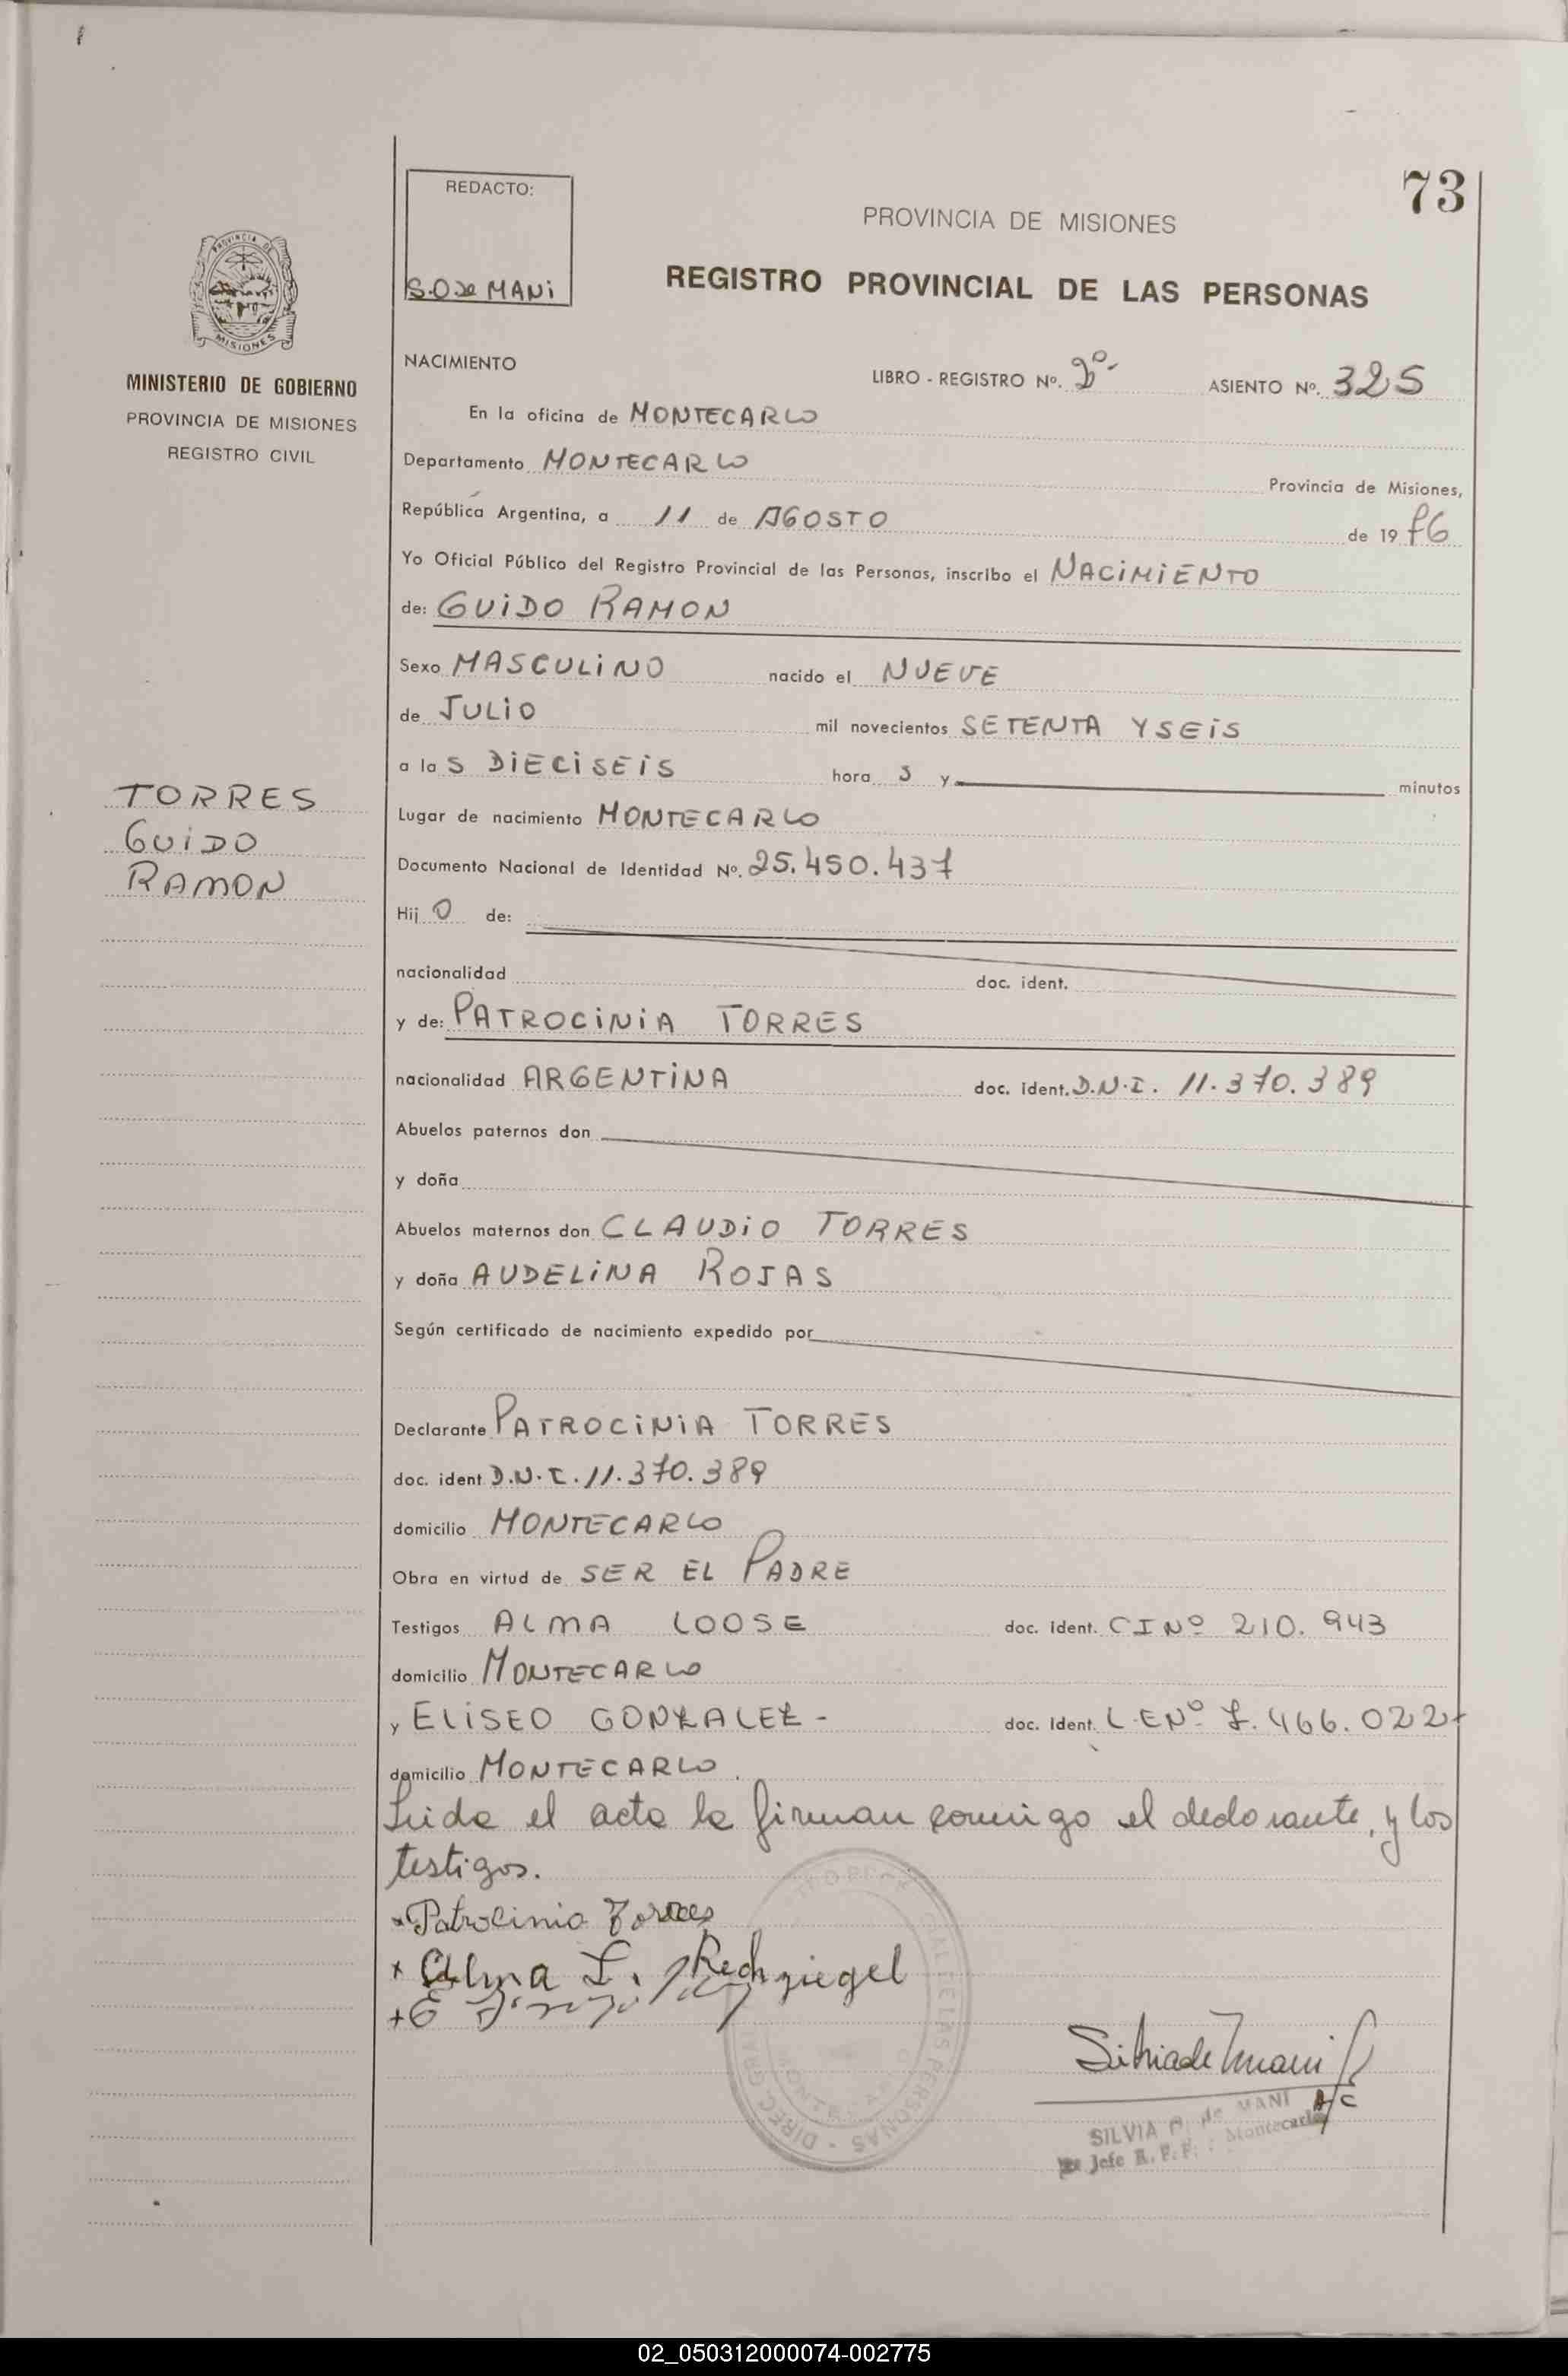 73
REDACTO:
S.O de MANi
PROVINCIA DE MISIONES
REGISTRO PROVINCIAL DE LAS PERSONAS
PROVINCIA DE
MISIONES
MINISTERIO DE GOBIERNO
PROVINCIA DE MISIONES
REGISTRO CIVIL
NACIMIENTO
LIBRO - REGISTRO Nº. 2º- ASIENTO Nº. 325
En la oficina de MONTECARLO
Departamento MONTECARLO Provincia de Misiones,
República Argentina, a 11 de AGOSTO de 19 76
Yo Oficial Público del Registro Provincial de las Personas, inscribo el NACiMiENTO
de: GUiDO RAMON
Sexo MASCULiNO nacido el NUEVE
de JULiO mil novecientos SETENTA Y SEiS
a la S DiECiSEiS hora S y minutos
TORRES
GUiDO
RAMON
Lugar de nacimiento MONTECARLO
Documento Nacional de Identidad Nº. 25.450.437
Hij O de:
nacionalidad doc. ident.
y de: PATROCiNiA TORRES
nacionalidad ARGENTiNA doc. ident. D.N.I. 11.370.389
Abuelos paternos don
y doña
Abuelos maternos don CLAUDiO TORRES
y doña AUDELiNA ROJAS
Según certificado de nacimiento expedido por
Declarante PATROCiNiA TORRES
doc. ident D.N.I. 11.370.389
domicilio MONTECARLO
Obra en virtud de SER EL PADRE
Testigos ALMA LOOSE doc. ident. CI Nº 210.943
domicilio MONTECARLO
y ELiSEO GONZALEZ - doc. Ident. L.E Nº 7.466.022
domicilio MONTECARLO.
Leida el acta la firman conmigo el declarante, y los
testigos.
Patrocinia Torres
Alma L. Rechziegel
Silvia de Mani
A/C
SILVIA O. de MANI
Jefe R. P. P. - Montecarlo
DIRECC PERSONAS
02_050312000074-002775